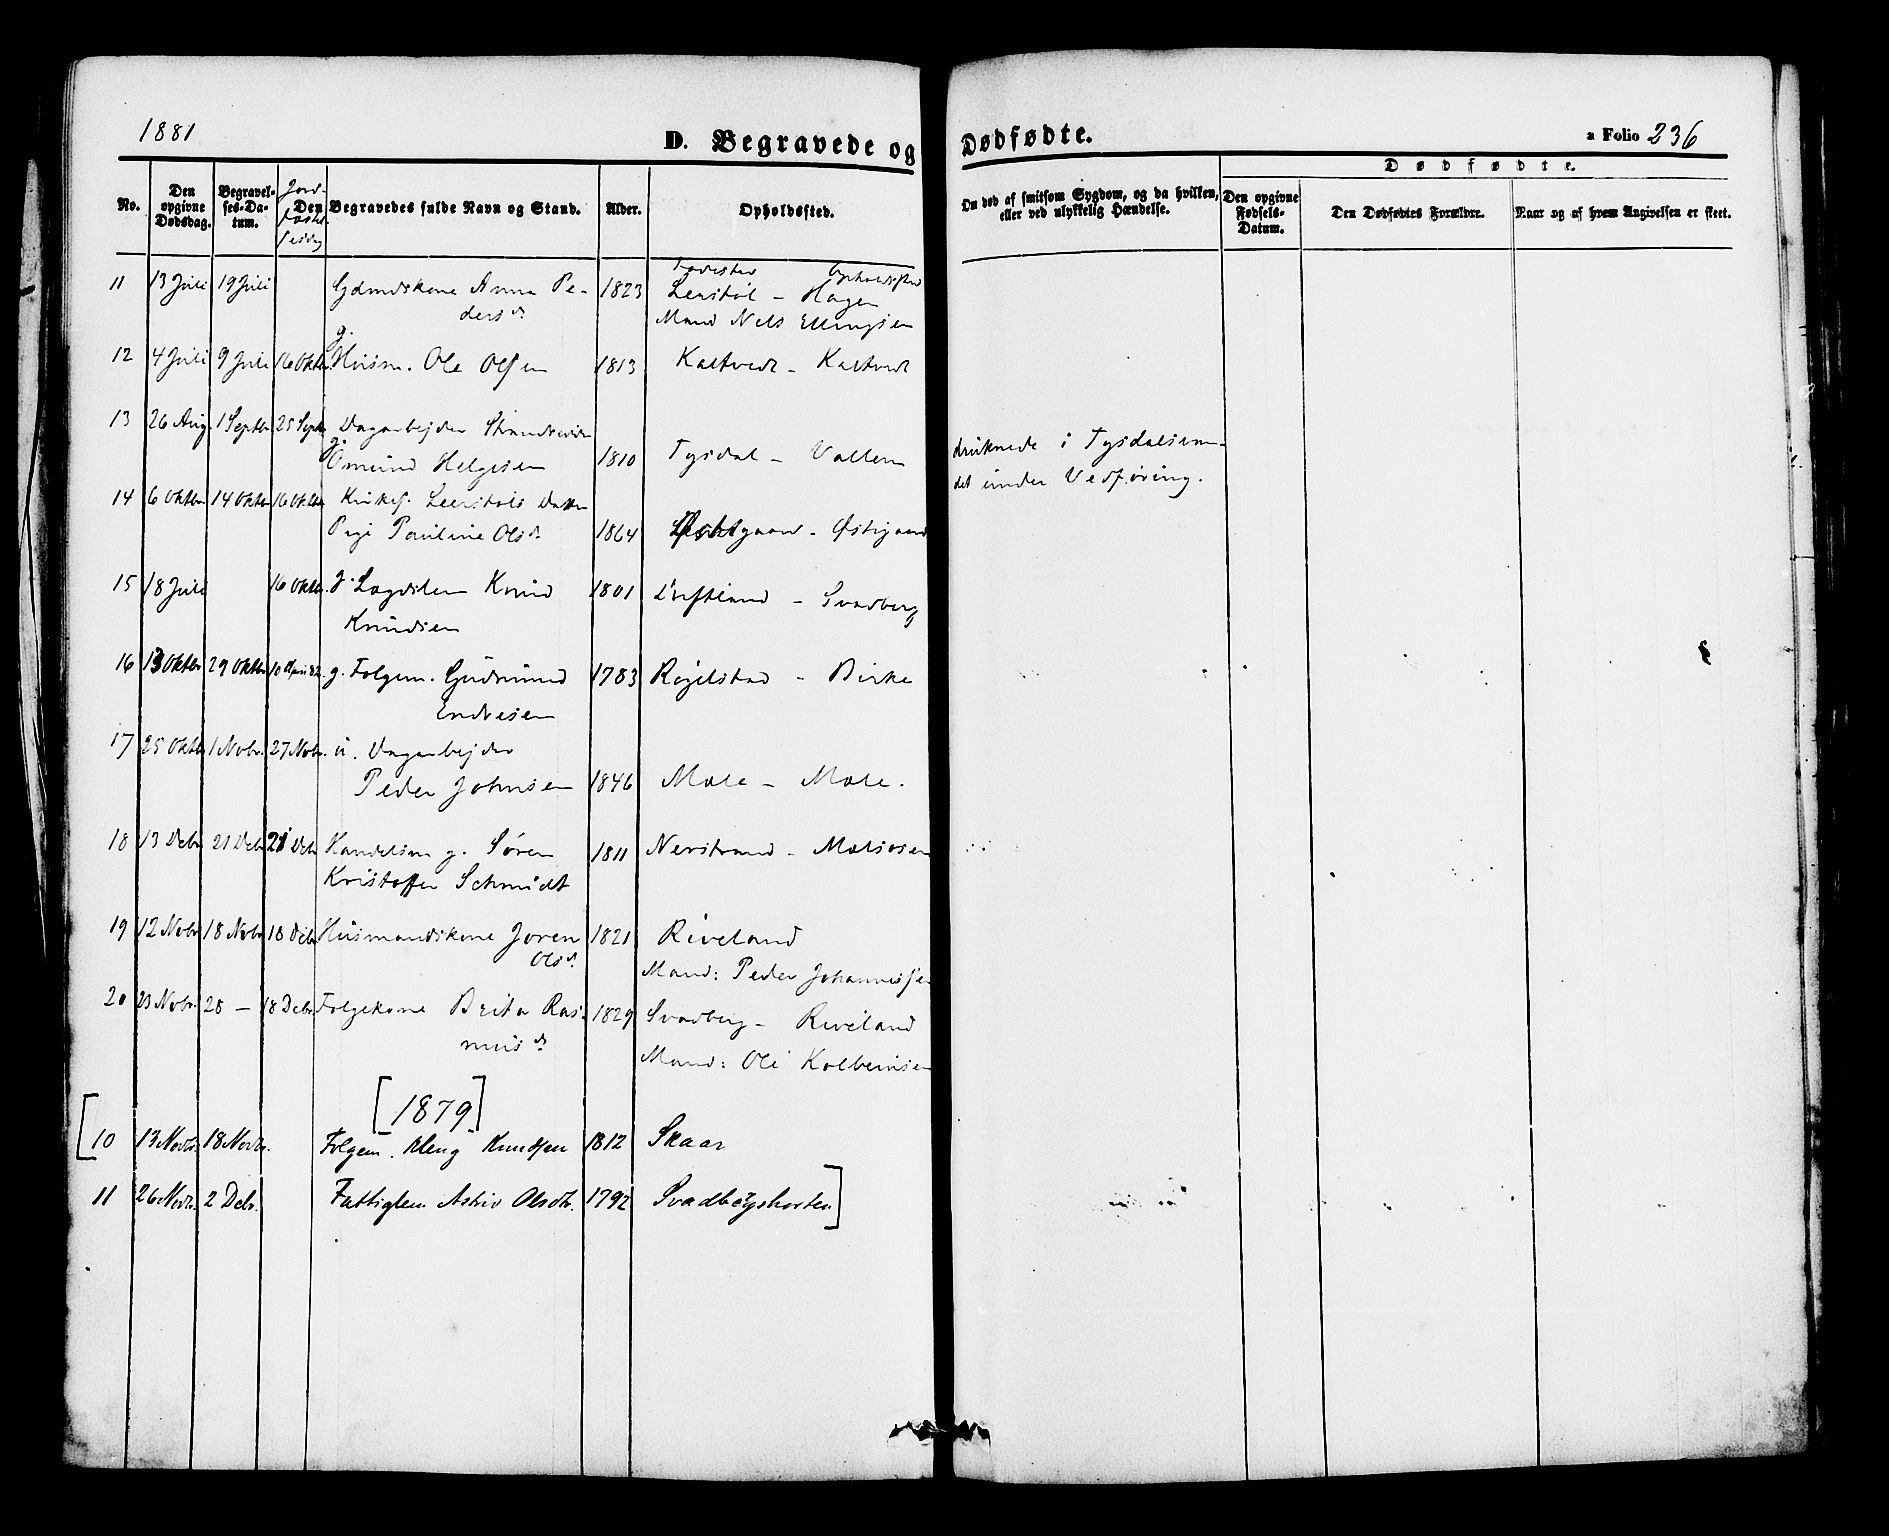 1881
D. Begravede og Dødfødte.
a Folio 236
No.
Den opgivne Dødsdag.
Begravelses-Datum.
Den Begravedes fulde Navn og Stand.
Alder.
Opholdssted.
Om død af smitsom Sygdom, og da hvilken, eller ved ulykkelig Hændelse.
Dødfødte.
Den opgivne Fødsels-Datum.
Den Dødfødtes Forældre.
Naar og af hvem Angivelsen er skeet.
Fødested Opholdssted
11 13 Juli 19 Juli Gdmdskone Anna Pe- 1823 Leerstøl - Hagen
dersd. Mand Nels Ellingsen
12 4 Juli 9 Juli 16 Oktbr. g. Husm. Ole Olsen 1813 Kaltvedt - Kaltvedt
13 26 Aug. 1 Septbr 25 Septbr Dagarbejder Strandsidder
g. Omund Helgesen 1810 Tysdal - Vallen druknede i Tysdalsvan-
det under Vedføring.
14 6 Oktbr 14 Oktbr 16 Oktbr Kirkes. Leerstøls Datter
Pige Pauline Olsd. 1864 Østigaard - Østigaard
15 18 Juli 16 Oktbr. g. Lægdslem Knud 1801 - Svadberg
Knudsen
16 13 Oktbr 29 Oktbr 10 April 82. g. Folgem. Gudmund 1783 Røgelstad - Birke
Endresen
17 25 Oktbr 1 Nobr. 27 Nobr. u. Dagarbejder
Peder Johnsen 1846 Mæle - Mæle.
18 13 Debr 21 Debr 21 Debr Handelsm g. Søren 1811 Nerstrand - Mælsosen
Kristoffer Schmidt
19 12 Nobr 18 Nobr 18 Debr Husmandskone Joren 1821 Riveland
Olsd. Mand: Peder Johannessen
20 23 Nobr. 28 — 18 Debr. Folgekone Brita Ras- 1829 Svadberg - Riveland
musd. Mand: Ole Kolbeinsen
[1879]
[10 13 Novbr. 18 Novbr. Folgem. Knudsen 1812 Skaar
11 26 Novbr. 2 Debr. Fattiglem Astrid Olsdtr. 1792 Svadbergshorten]